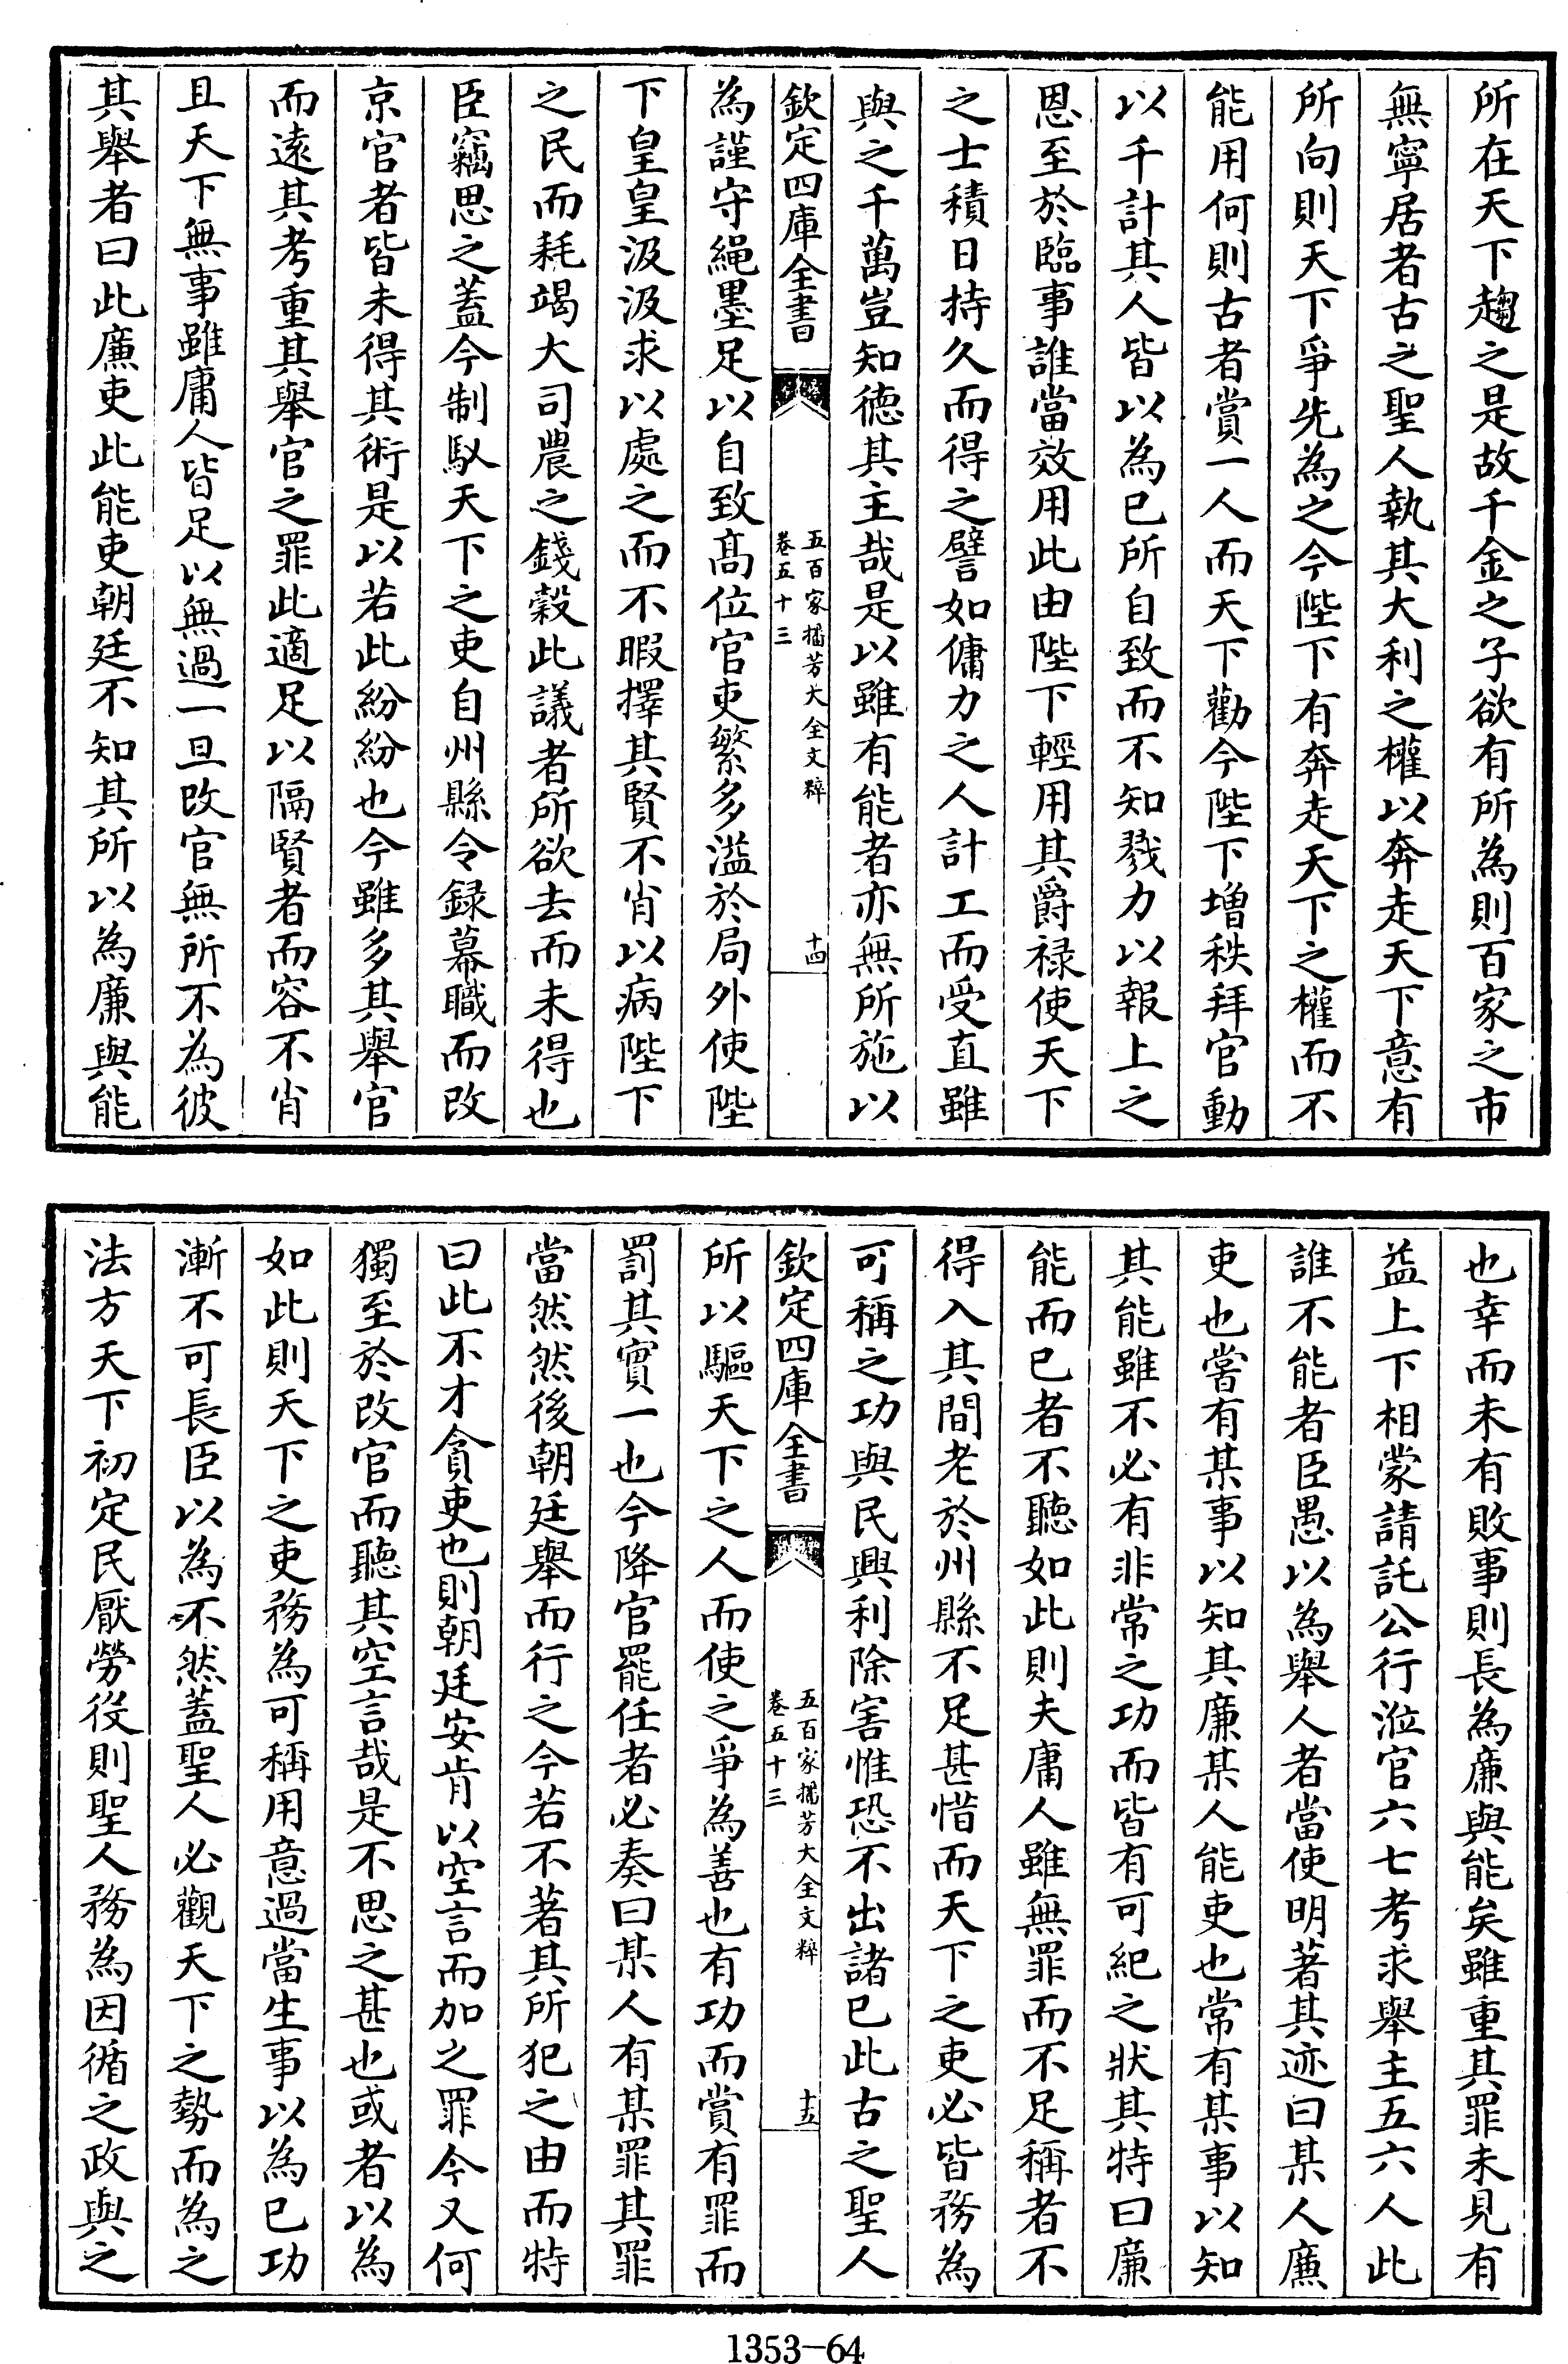 所在天下趨之是故千金之子欲有所為則百家之市
無寧居者古之聖人執其大利之權以奔走天下意有
所向則天下爭先為之今陛下有奔走天下之權而不
能用何則古者賞一人而天下勸今陛下增秩拜官動
以千計其人皆以為已所自致而不知戮力以報上之
恩至於臨事誰當效用此由陛下輕用其爵禄使天下
之士積日持久而得之譬如傭力之人計工而受直雖
與之千萬豈知德其主哉是以雖有能者亦無所施以
欽定四庫全書
五百家播芳大全文粹
卷五十三
十四
為謹守繩墨足以自致髙位官吏繁多溢於局外使陛
下皇皇汲汲求以處之而不暇擇其賢不肖以病陛下
之民而耗竭大司農之錢糓此議者所欲去而未得也
臣竊思之蓋今制馭天下之吏自州縣令録幕職而改
京官者皆未得其術是以若此紛紛也今雖多其舉官
而逺其考重其舉官之罪此適足以隔賢者而容不肖
且天下無事雖庸人皆足以無過一旦改官無所不為彼
其舉者曰此廉吏此能吏朝廷不知其所以為廉與能
也幸而未有敗事則長為廉與能矣雖重其罪未見有
益上下相蒙請託公行涖官六七考求舉主五六人此
誰不能者臣愚以為舉人者當使明著其迹曰某人廉
吏也嘗有某事以知其廉某人能吏也常有某事以知
其能雖不必有非常之功而皆有可紀之狀其特曰廉
能而已者不聽如此則夫庸人雖無罪而不足稱者不
得入其間老於州縣不足甚惜而天下之吏必皆務為
可稱之功與民興利除害惟恐不出諸已此古之聖人
欽定四庫全書
五百家播芳大全文粹
卷五十三
十五
所以驅天下之人而使之爭為善也有功而賞有罪而
罰其實一也今降官罷任者必奏曰某人有某罪其罪
當然然後朝廷舉而行之今若不著其所犯之由而特
曰此不才貪吏也則朝廷安肯以空言而加之罪今又何
獨至於改官而聽其空言哉是不思之甚也或者以為
如此則天下之吏務為可稱用意過當生事以為已功
漸不可長臣以為不然蓋聖人必觀天下之勢而為之
法方天下初定民厭勞役則聖人務為因循之政與之
1353-64